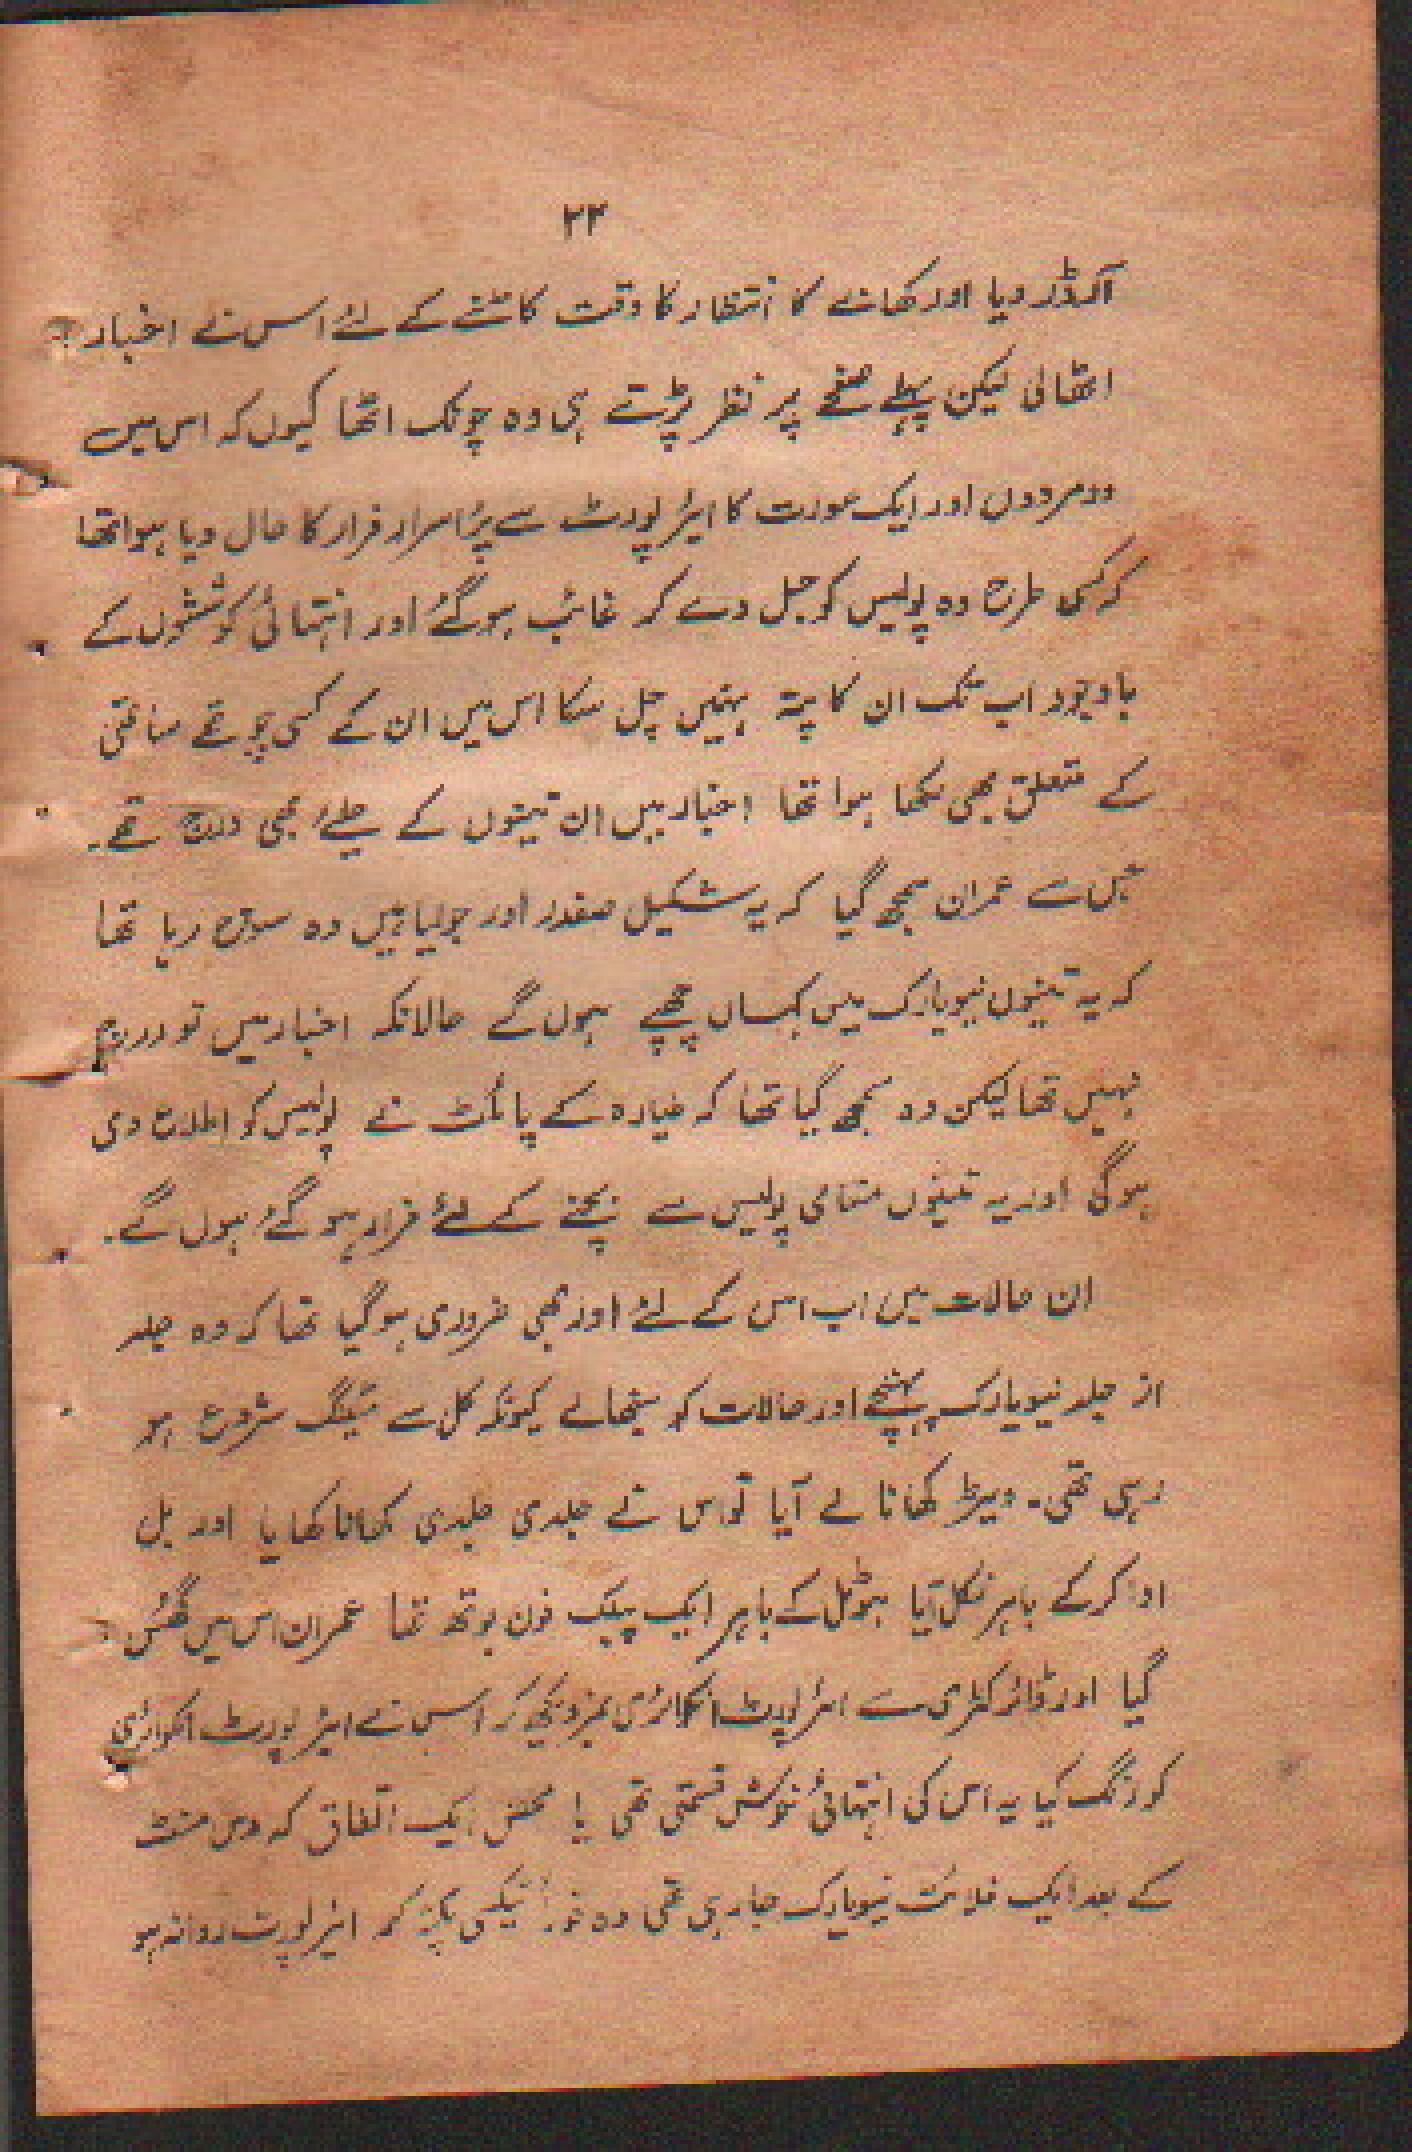 ۲۳
آرڈر دیا اور کھانے کا انتظار کا وقت کاٹنے کے لئے اس نے اخبار
اٹھائی لیکن پہلے صفحے پر نظر پڑتے ہی وہ چونک اٹھا کیوں کہ اس میں
دو مردوں اور ایک عورت کا ایئر پورٹ سے پراسرار فرار کا حال دیا ہوا تھا
کہ کس طرح وہ پولیس کو جل دے کر غائب ہو گئے اور انتہائی کوششوں کے
باوجود اب تک ان کا پتہ نہیں چل سکا اس میں ان کے کسی چوتھے ساتھی
کے متعلق بھی لکھا ہوا تھا اخبار میں ان تینوں کے حلئے بھی درج تھے۔
جس سے عمران سمجھ گیا کہ یہ شکیل صفدر اور جولیا ہیں وہ سوچ رہا تھا
کہ یہ تینوں نیویارک میں کہاں چھپے ہوں گے حالانکہ اخبار میں تو درج
نہیں تھا لیکن وہ سمجھ گیا تھا کہ طیارہ کے پائلٹ نے پولیس کو اطلاع دی
ہوگی اور یہ تینوں مقامی پولیس سے بچنے کے لئے فرار ہو گئے ہوں گے۔
ان حالات میں اب اس کے لئے اور بھی ضروری ہو گیا تھا کہ وہ جلد
از جلد نیویارک پہنچے اور حالات کو سنبھالے کیونکہ کل سے میٹنگ شروع ہو
رہی تھی۔ ویٹر کھانا لے آیا تو اس نے جلدی جلدی کھانا کھایا اور بل
ادا کر کے باہر نکل آیا ہوٹل کے باہر ایک پبلک فون بوتھ تھا عمران اس میں گھس
گیا اور ڈائرکٹری سے ایئر پورٹ انکوائری نمبر دیکھ کر اس نے ایئر پورٹ انکوائری
کو رنگ کیا یہ اس کی انتہائی خوش قسمتی تھی یا محض ایک اتفاق کہ دس منٹ
کے بعد ایک فلائٹ نیویارک جا رہی تھی وہ فوراً ٹیکسی پکڑ کر ایئر پورٹ روانہ ہو